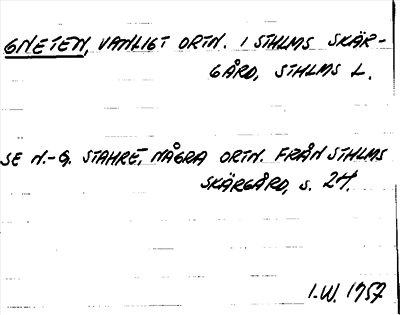 GNETEN, VANLIGT ORTN. I STHLMS SKÄR-
GÅRD, STHLMS L.
SE N.-G. STAHRE, NÅGRA ORTN. FRÅN STHLMS
SKÄRGÅRD, s. 24.
I.W. 1957